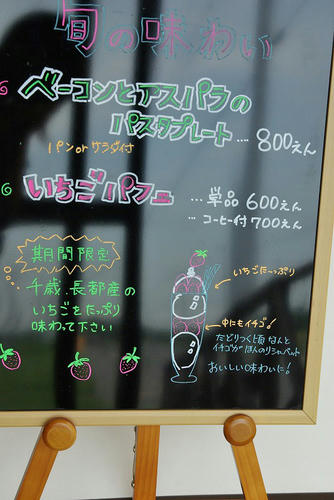 旬の味わい
ベーコンとアスパラの
パスタプレート … 800えん
パン or サラダ付
いちごパフェ … 単品 600えん
… コーヒー付 700えん
期間限定
千歳.長都産の
いちごをたっぷり
味わって下さい
いちごたーっぷり
中にもイチゴ!
たどりつく頃なんと
イチゴがほんのりシャーベット
おいしい味わいに!